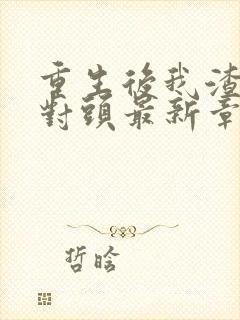 重生後我渣
對頭最新章
哲晗